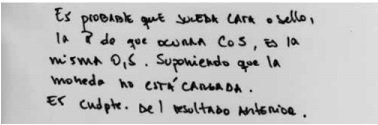 Es probable que suceda cara o sello,
la P de que ocurra C o S, es la
misma 0,5. Suponiendo que la
moneda no está cargada.
Es cudpte. del resultado anterior.